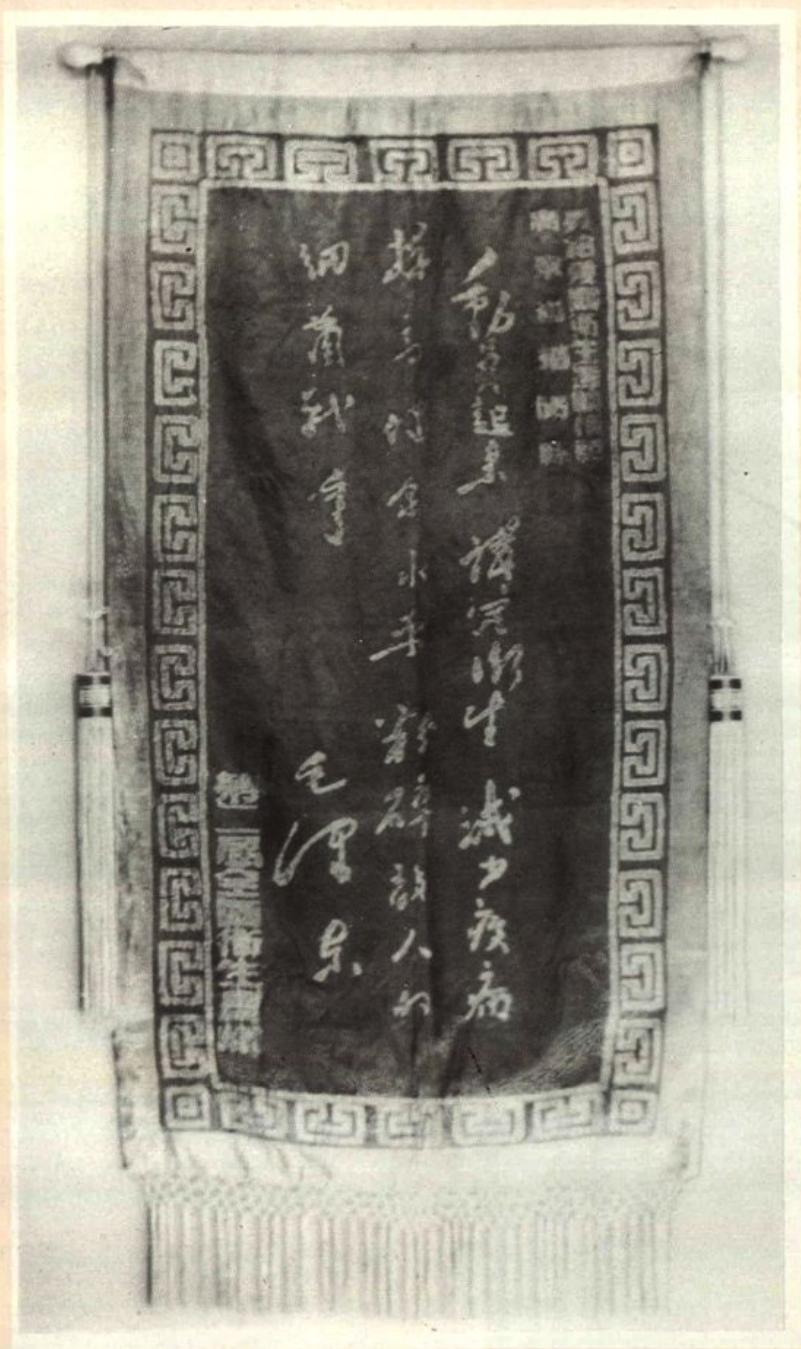 獎給愛國衛生運動模範
廣東省揭陽縣
動員起来 講究衛生 減少疾病
提高健康水平 粉碎敵人的
細菌戰爭 毛澤东
第二屆全國衛生會議